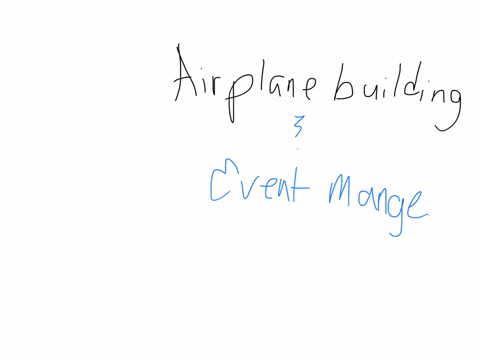 Airplane building
3
Event mange